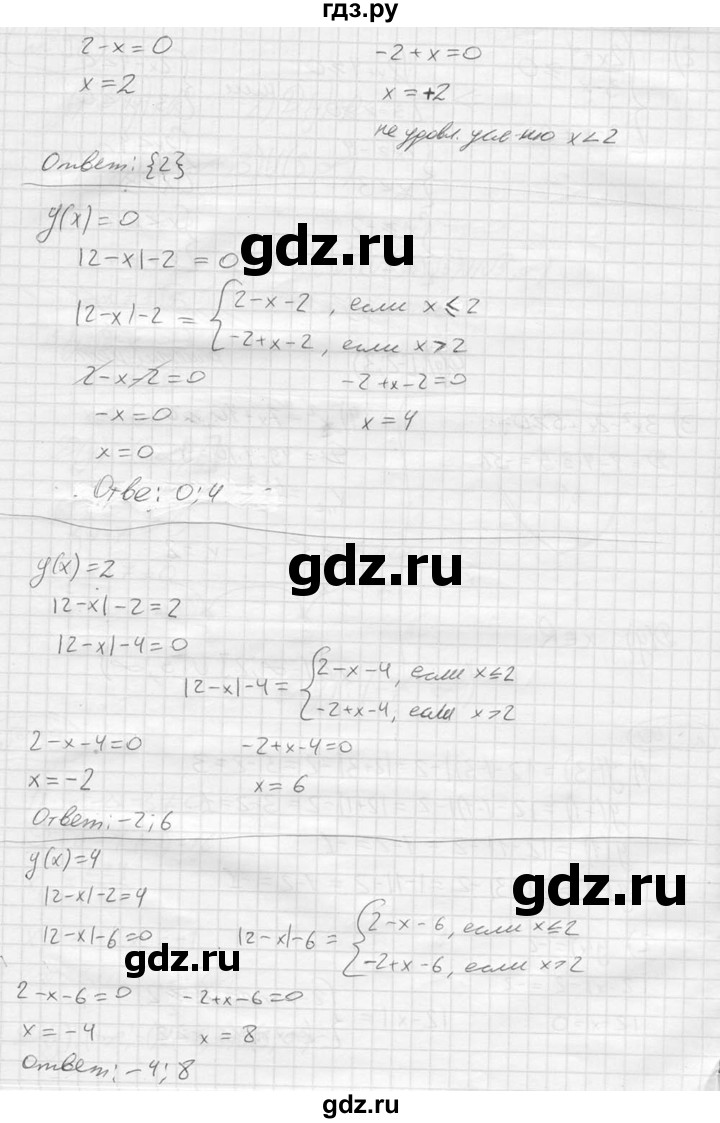 гдз.ру
2-x=0 -2+x=0
x=2 x=+2
не удовл. усл-ию x<2
Ответ: {2}
y(x)=0
gdz.ru
|2-x|-2=0
|2-x|-2= { 2-x-2, если x≤2
-2+x-2, если x>2
2-x-2=0 -2+x-2=0
-x=0 x=4
x=0
Отве: 0;4
gdz.ru
y(x)=2
|2-x|-2=2
|2-x|-4=0
|2-x|-4= { 2-x-4, если x≤2
-2+x-4, если x>2
2-x-4=0 -2+x-4=0
x=-2 x=6
Ответ: -2;6
y(x)=4
gdz.ru
|2-x|-2=4
|2-x|-6=0 |2-x|-6= { 2-x-6, если x≤2
-2+x-6, если x>2
gdz.ru
2-x-6=0 -2+x-6=0
x=-4 x=8
Ответ: -4;8
gdz.ru